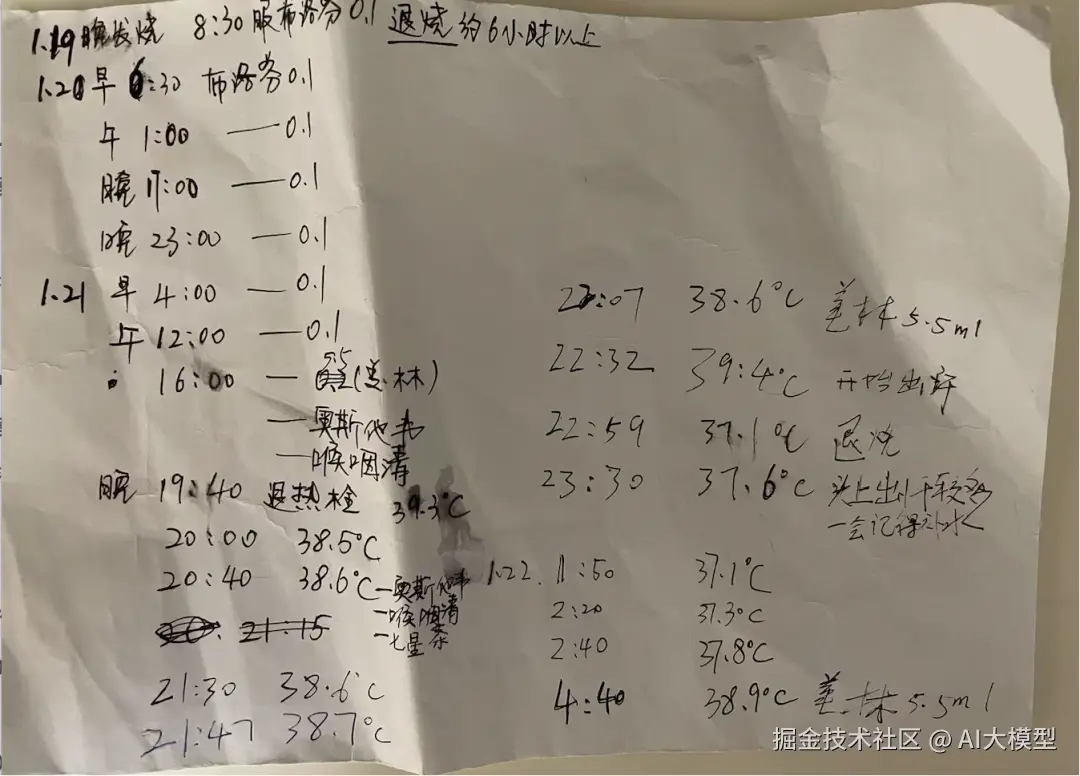 1.19晚发烧 8:30服布洛芬0.1 退烧约6小时以上
1.20早 6:30 布洛芬0.1
午 1:00 —— 0.1
晚 17:00 —— 0.1
晚 23:00 —— 0.1
1.21 早 4:00 —— 0.1
午 12:00 —— 0.1
16:00 — 5.5(美林)
— 奥斯他韦
— 喉咽清
晚 19:40 退热栓 39.3℃
20:00 38.5℃
20:40 38.6℃ — 奥斯他韦
— 喉咽清
— 七星茶
21:15
21:30 38.6℃
21:47 38.7℃
22:07 38.6℃ 美林5.5ml
22:32 39:4℃ 开始出汗
22:59 37.1℃ 退烧
23:30 37.6℃ 头上出汗较多
一会记得补水
1.22. 11:50 37.1℃
2:20 37.3℃
2:40 37.8℃
4:40 38.9℃ 美林5.5ml
掘金技术社区 @ AI大模型